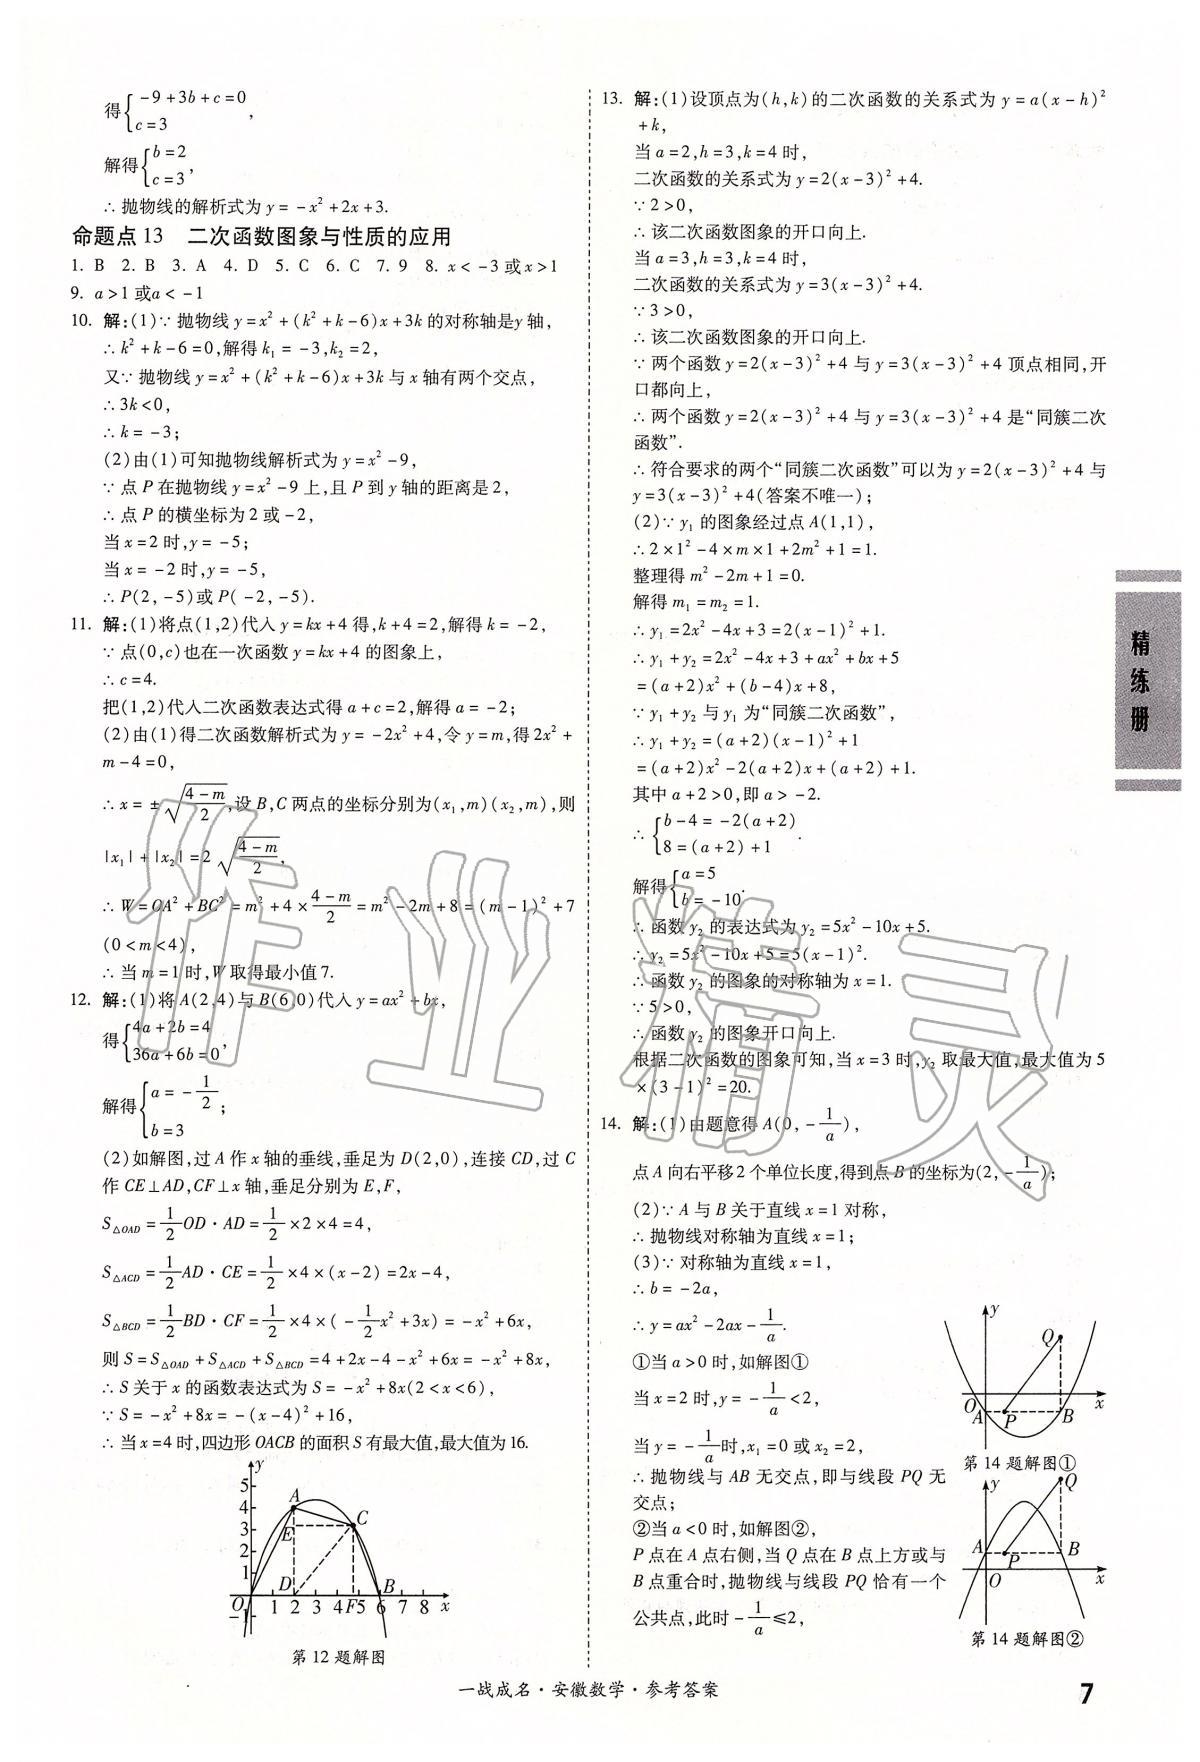 得{-9+3b+c=0
c=3,
解得{b=2
c=3,
∴抛物线的解析式为y=-x²+2x+3.
命题点13 二次函数图象与性质的应用
1. B 2. B 3. A 4. D 5. C 6. C 7. 9 8. x<-3或x>1
9. a>1或a<-1
10. 解:(1)∵抛物线y=x²+(k²+k-6)x+3k的对称轴是y轴,
∴k²+k-6=0,解得k₁=-3,k₂=2,
又∵抛物线y=x²+(k²+k-6)x+3k与x轴有两个交点,
∴3k<0,
∴k=-3;
(2)由(1)可知抛物线解析式为y=x²-9,
∵点P在抛物线y=x²-9上,且P到y轴的距离是2,
∴点P的横坐标为2或-2,
当x=2时,y=-5;
当x=-2时,y=-5,
∴P(2,-5)或P(-2,-5).
11. 解:(1)将点(1,2)代入y=kx+4得,k+4=2,解得k=-2,
∵点(0,c)也在一次函数y=kx+4的图象上,
∴c=4.
把(1,2)代入二次函数表达式得a+c=2,解得a=-2;
(2)由(1)得二次函数解析式为y=-2x²+4,令y=m,得2x²+
m-4=0,
∴x=±√((4-m)/2),设B,C两点的坐标分别为(x₁,m)(x₂,m),则
|x₁|+|x₂|=2√((4-m)/2),
∴W=OA²+BC²=m²+4×(4-m)/2=m²-2m+8=(m-1)²+7
(0<m<4),
∴当m=1时,W取得最小值7.
12. 解:(1)将A(2,4)与B(6,0)代入y=ax²+bx,
得{4a+2b=4
36a+6b=0,
解得{a=-1/2
b=3;
(2)如解图,过A作x轴的垂线,垂足为D(2,0),连接CD,过C
作CE⊥AD,CF⊥x轴,垂足分别为E,F,
S△OAD=1/2OD·AD=1/2×2×4=4,
S△ACD=1/2AD·CE=1/2×4×(x-2)=2x-4,
S△BCD=1/2BD·CF=1/2×4×(-1/2x²+3x)=-x²+6x,
则S=S△OAD+S△ACD+S△BCD=4+2x-4-x²+6x=-x²+8x,
∴S关于x的函数表达式为S=-x²+8x(2<x<6),
∵S=-x²+8x=-(x-4)²+16,
∴当x=4时,四边形OACB的面积S有最大值,最大值为16.
y
5
4 A
3 E C
2
1
O D F B
-1 1 2 3 4 5 6 7 8 x
第12题解图
13. 解:(1)设顶点为(h,k)的二次函数的关系式为y=a(x-h)²
+k,
当a=2,h=3,k=4时,
二次函数的关系式为y=2(x-3)²+4.
∵2>0,
∴该二次函数图象的开口向上.
当a=3,h=3,k=4时,
二次函数的关系式为y=3(x-3)²+4.
∵3>0,
∴该二次函数图象的开口向上.
∵两个函数y=2(x-3)²+4与y=3(x-3)²+4顶点相同,开
口都向上,
∴两个函数y=2(x-3)²+4与y=3(x-3)²+4是“同簇二次
函数”.
∴符合要求的两个“同簇二次函数”可以为y=2(x-3)²+4与
y=3(x-3)²+4(答案不唯一);
(2)∵y₁的图象经过点A(1,1),
∴2×1²-4×m×1+2m²+1=1.
整理得m²-2m+1=0.
解得m₁=m₂=1.
∴y₁=2x²-4x+3=2(x-1)²+1.
∴y₁+y₂=2x²-4x+3+ax²+bx+5
=(a+2)x²+(b-4)x+8,
∵y₁+y₂与y₁为“同簇二次函数”,
∴y₁+y₂=(a+2)(x-1)²+1
=(a+2)x²-2(a+2)x+(a+2)+1.
其中a+2>0,即a>-2.
∴{b-4=-2(a+2)
8=(a+2)+1.
解得{a=5
b=-10.
∴函数y₂的表达式为y₂=5x²-10x+5.
∴y₂=5x²-10x+5=5(x-1)².
∴函数y₂的图象的对称轴为x=1.
∵5>0,
∴函数y₂的图象开口向上.
根据二次函数的图象可知,当x=3时,y₂取最大值,最大值为5
×(3-1)²=20.
14. 解:(1)由题意得A(0,-1/a),
点A向右平移2个单位长度,得到点B的坐标为(2,-1/a);
(2)∵A与B关于直线x=1对称,
∴抛物线对称轴为直线x=1;
(3)∵对称轴为直线x=1,
∴b=-2a,
∴y=ax²-2ax-1/a.
①当a>0时,如解图①
当x=2时,y=-1/a<2,
当y=-1/a时,x₁=0或x₂=2,
∴抛物线与AB无交点,即与线段PQ无
交点;
②当a<0时,如解图②,
P点在A点右侧,当Q点在B点上方或与
B点重合时,抛物线与线段PQ恰有一个
公共点,此时-1/a≤2,
y
Q
O
A P B x
第14题解图①
y
Q
A P B
O x
第14题解图②
精练册
一战成名·安徽数学·参考答案
7
作业精灵